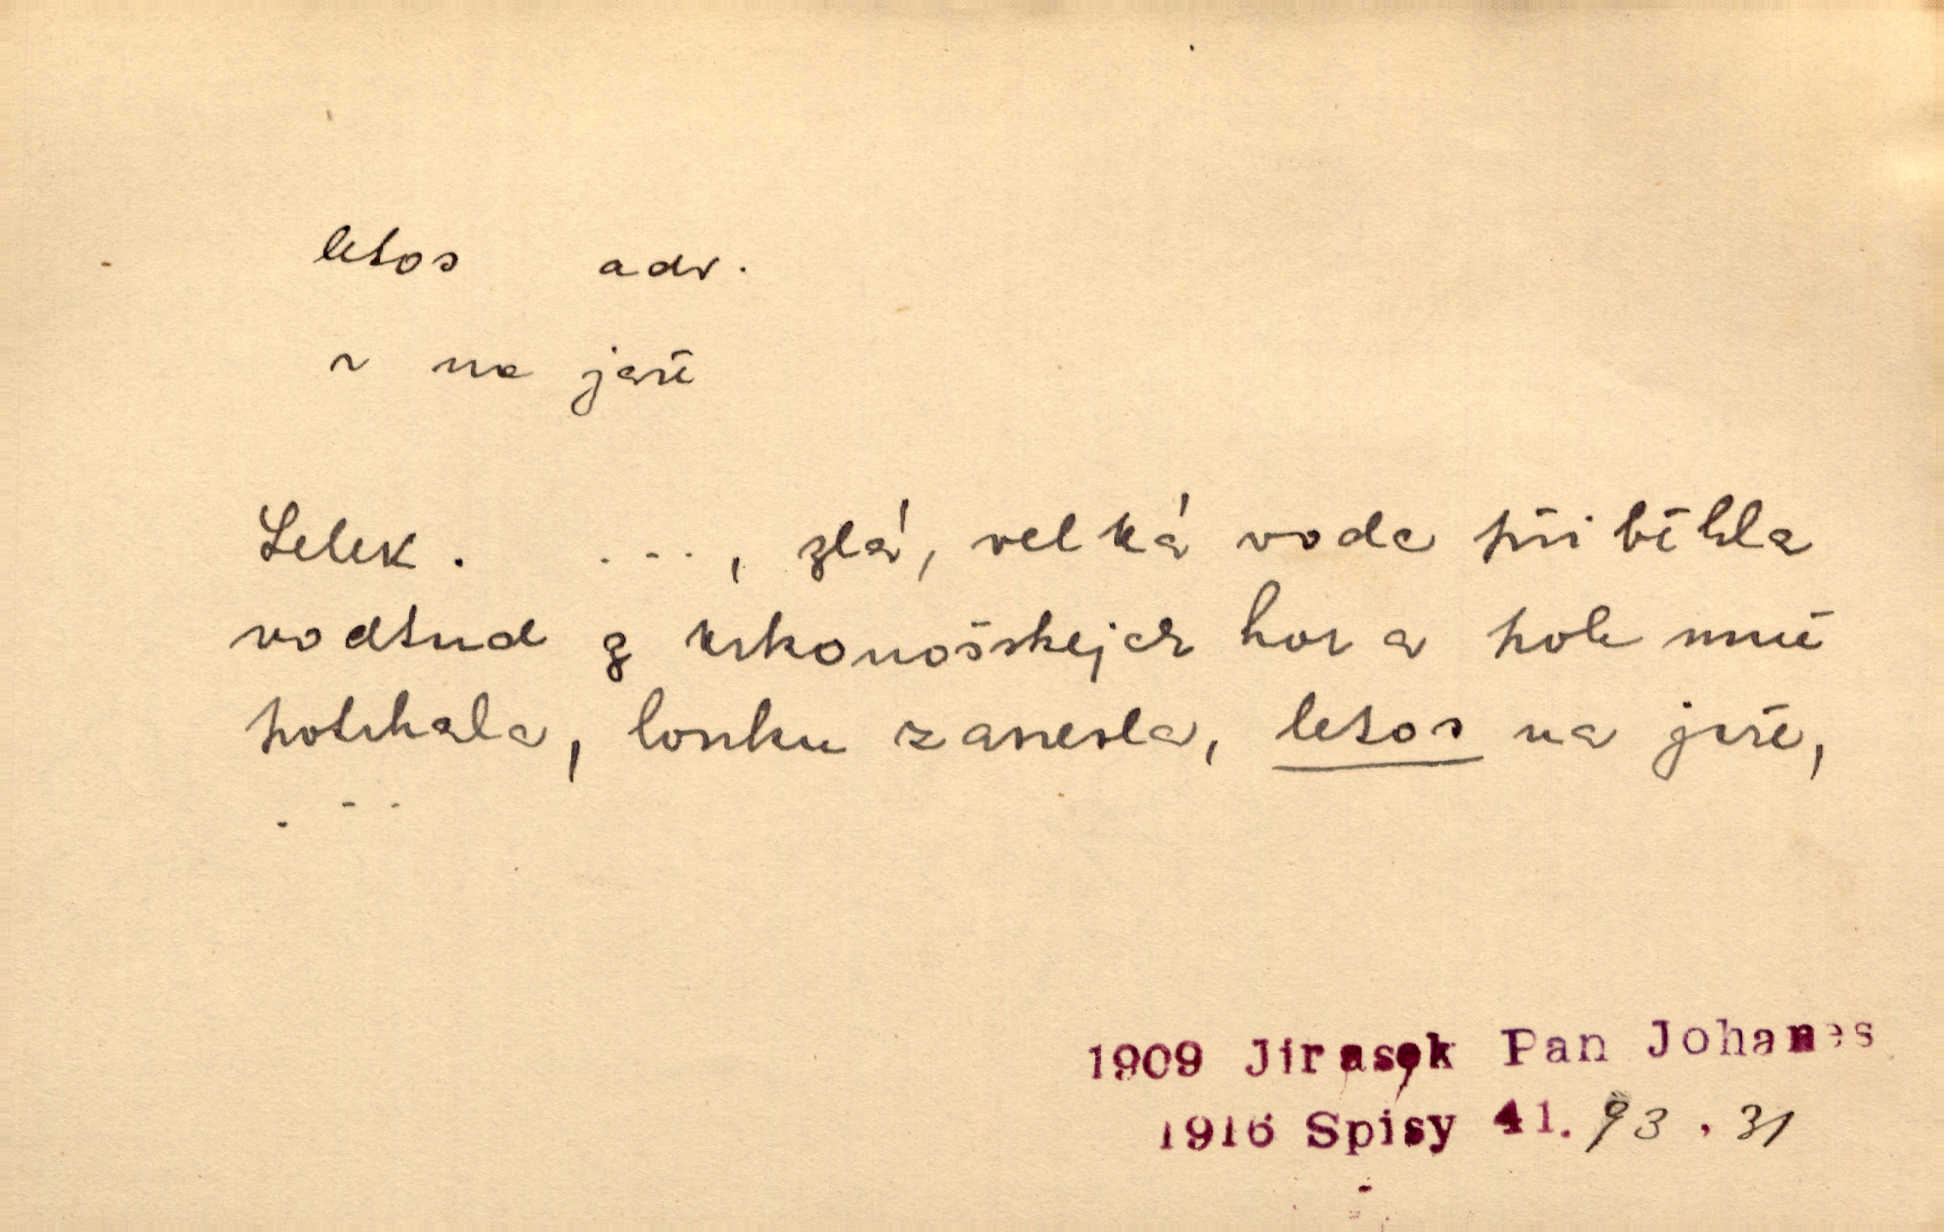 letos adv.
~ na jaře
Lelek. ..., zlá, velká voda přiběhla
vodtud z krkonošskejch hor a pole mně
potrhala, louku zanesla, letos na jaře,
...
1909 Jirasek Pan Johanes
1916 Spisy 41. 93, 31